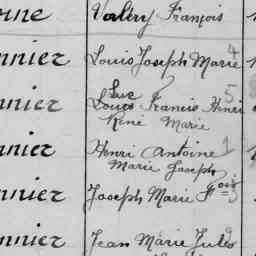 Valéry François
nnier Louis Joseph Marie 4
Luc 5
nnier Francis Henri
René Marie
nnier Henri Antoine 1
Marie Joseph
nnier Joseph Marie
nnier Jean Marie Jules